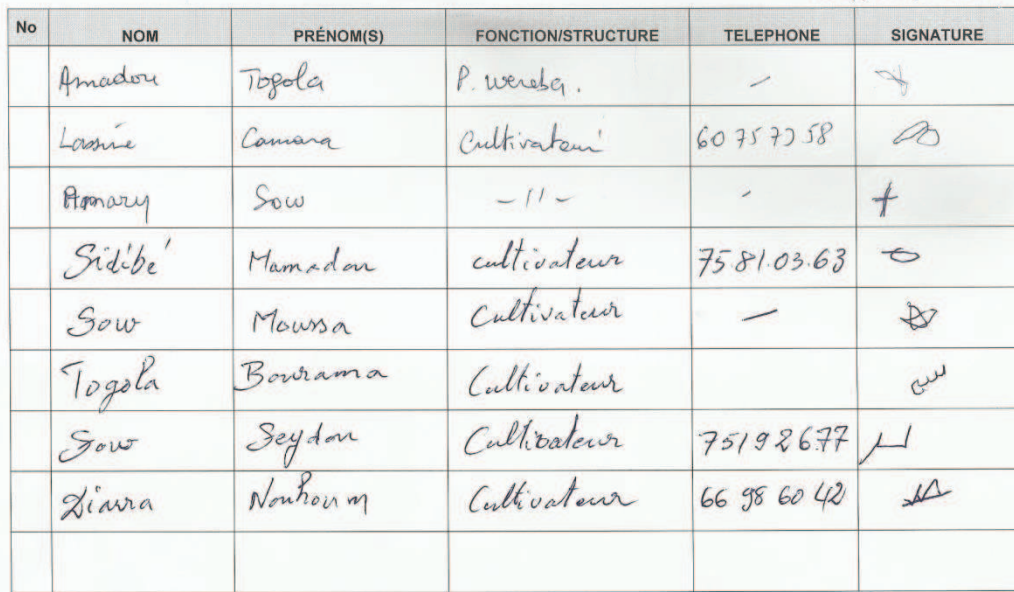 No NOM PRÉNOM(S) FONCTION/STRUCTURE TELEPHONE SIGNATURE
Amadou Togola P. wereba. –
Lassine Camara Cultivateur
Amary Sow –//– -
Sidibé Mamadou cultivateur 75.81.03.63
Sow Moussa Cultivateur –
Togola Bourama Cultivateur
Sow Seydou Cultivateur 75192677
Diarra Nouhoum Cultivateur 66 98 60 42